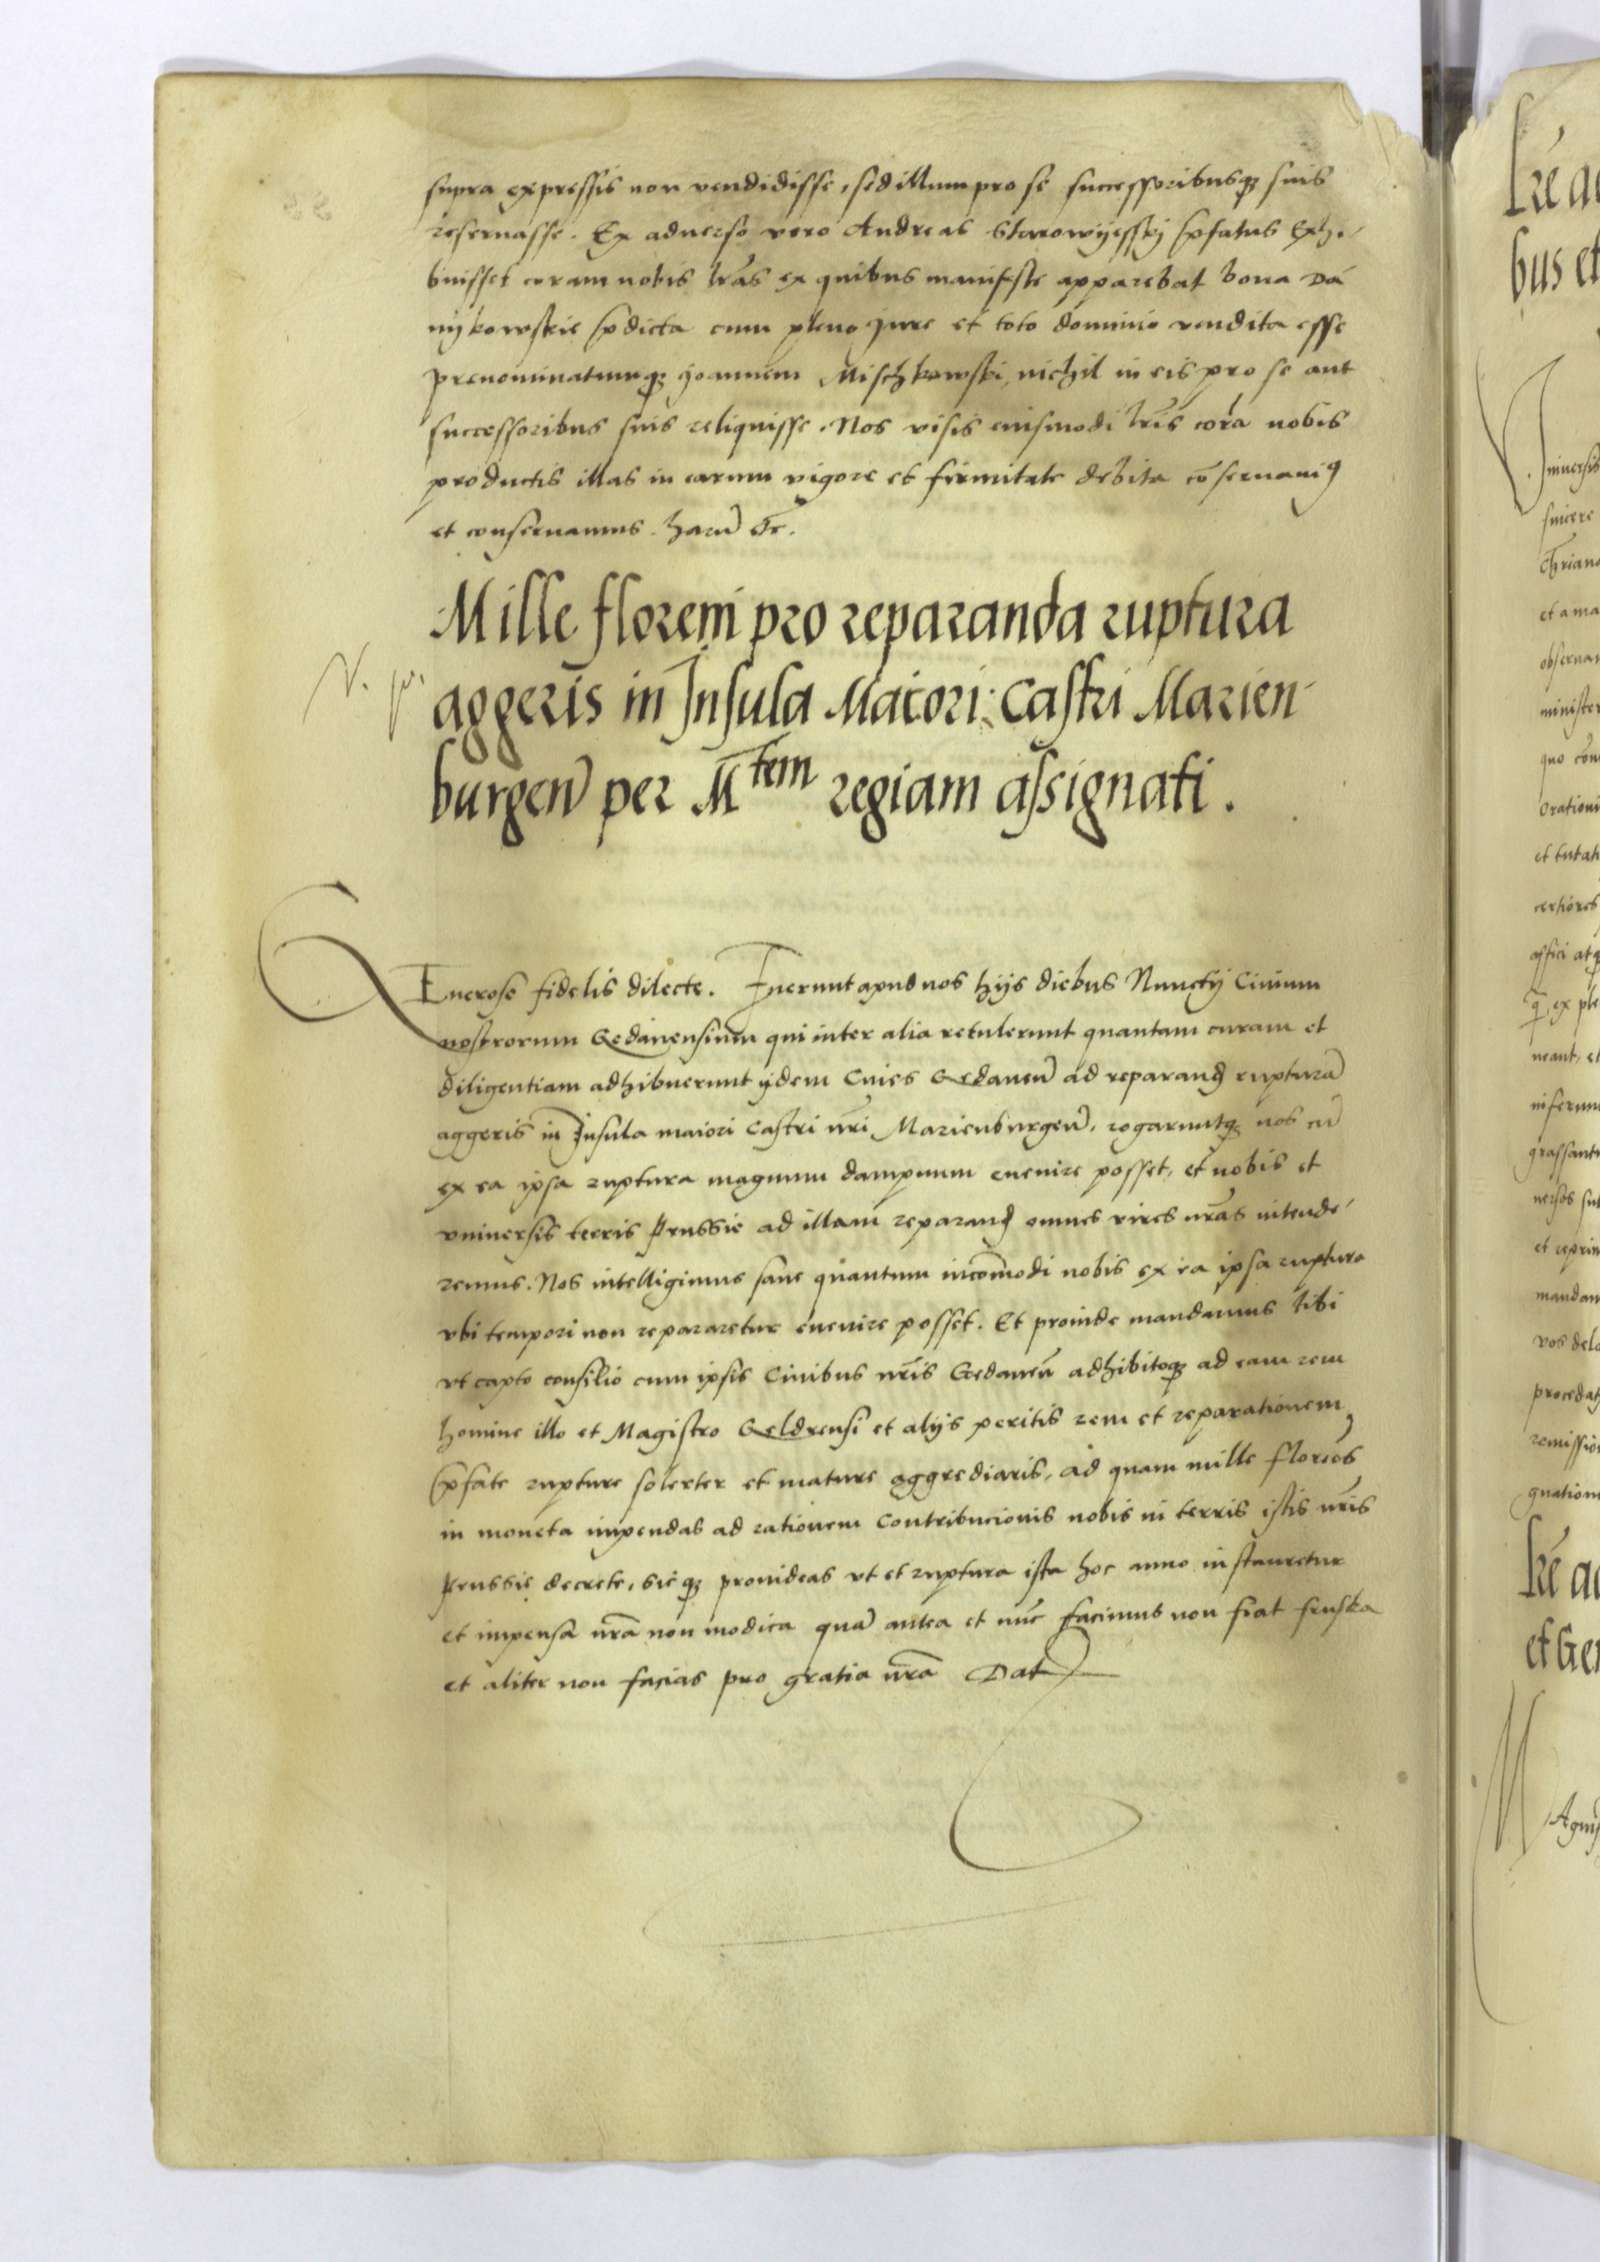 supra expressis non vendidisse, sed illum pro se successoribusq; suis
reservasse. Ex adverso vero Andreas Starowyesskij p̄fatus Exhi-
buisset coram nobis l̄ras ex quibus manifeste apparebat bona Da
nijkowskie p̄dicta cum pleno jure et toto dominio vendita esse
prenominatumq; Joannem Mischkowski nichil in eis pro se aut
successoribus suis reliquisse. Nos visis eiusmodi l̄ris corā nobis
productis illas in earum vigore et firmitate debita cōservaviꝰ
et conservamus. harū &c.
Mille floreni pro reparanda ruptura
aggeris in Insula Maiori Castri Marien-
burgeñ per Mtem regiam assignati.
Generose fidelis dilecte. Fuerunt apud nos hijs diebus Nunctij Civium
nostrorum Gedanensium qui inter alia retulerunt quantam curam et
diligentiam adhibuerunt ijdem Cives Gedaneñ ad reparand rupturā
aggeris in Insula maiori Castri nr̄i Marienburgeñ, rogaruntq; nos cū
ex ea ipsa ruptura magnum dampnum evenire posset, et nobis et
universis terris Prussie ad illam reparand omnes vires nr̄as intende-
remus. Nos intelligimus sane quantum incōmodi nobis ex ea ipsa ruptura
ubi tempori non repararetur evenire posset. Et proinde mandamus tibi
ut capto consilio cum ipsis Civibus nr̄is Gedaneñ adhibitoq; ad eam rem
homine illo et Magistro Geldrensi et alijs peritis rem et reparationem
p̄fate rupture solerter et mature aggrediaris, ad quam mille floreos
in moneta impendas ad rationem Contribucionis nobis in terris istis nr̄is
Prussie decrete, sicq; provideas ut et ruptura ista hoc anno instauretur
et impensa nr̄a non modica quā antea et nūc facimus non fiat frustra
et aliter non facias pro gratia nr̄a Dat